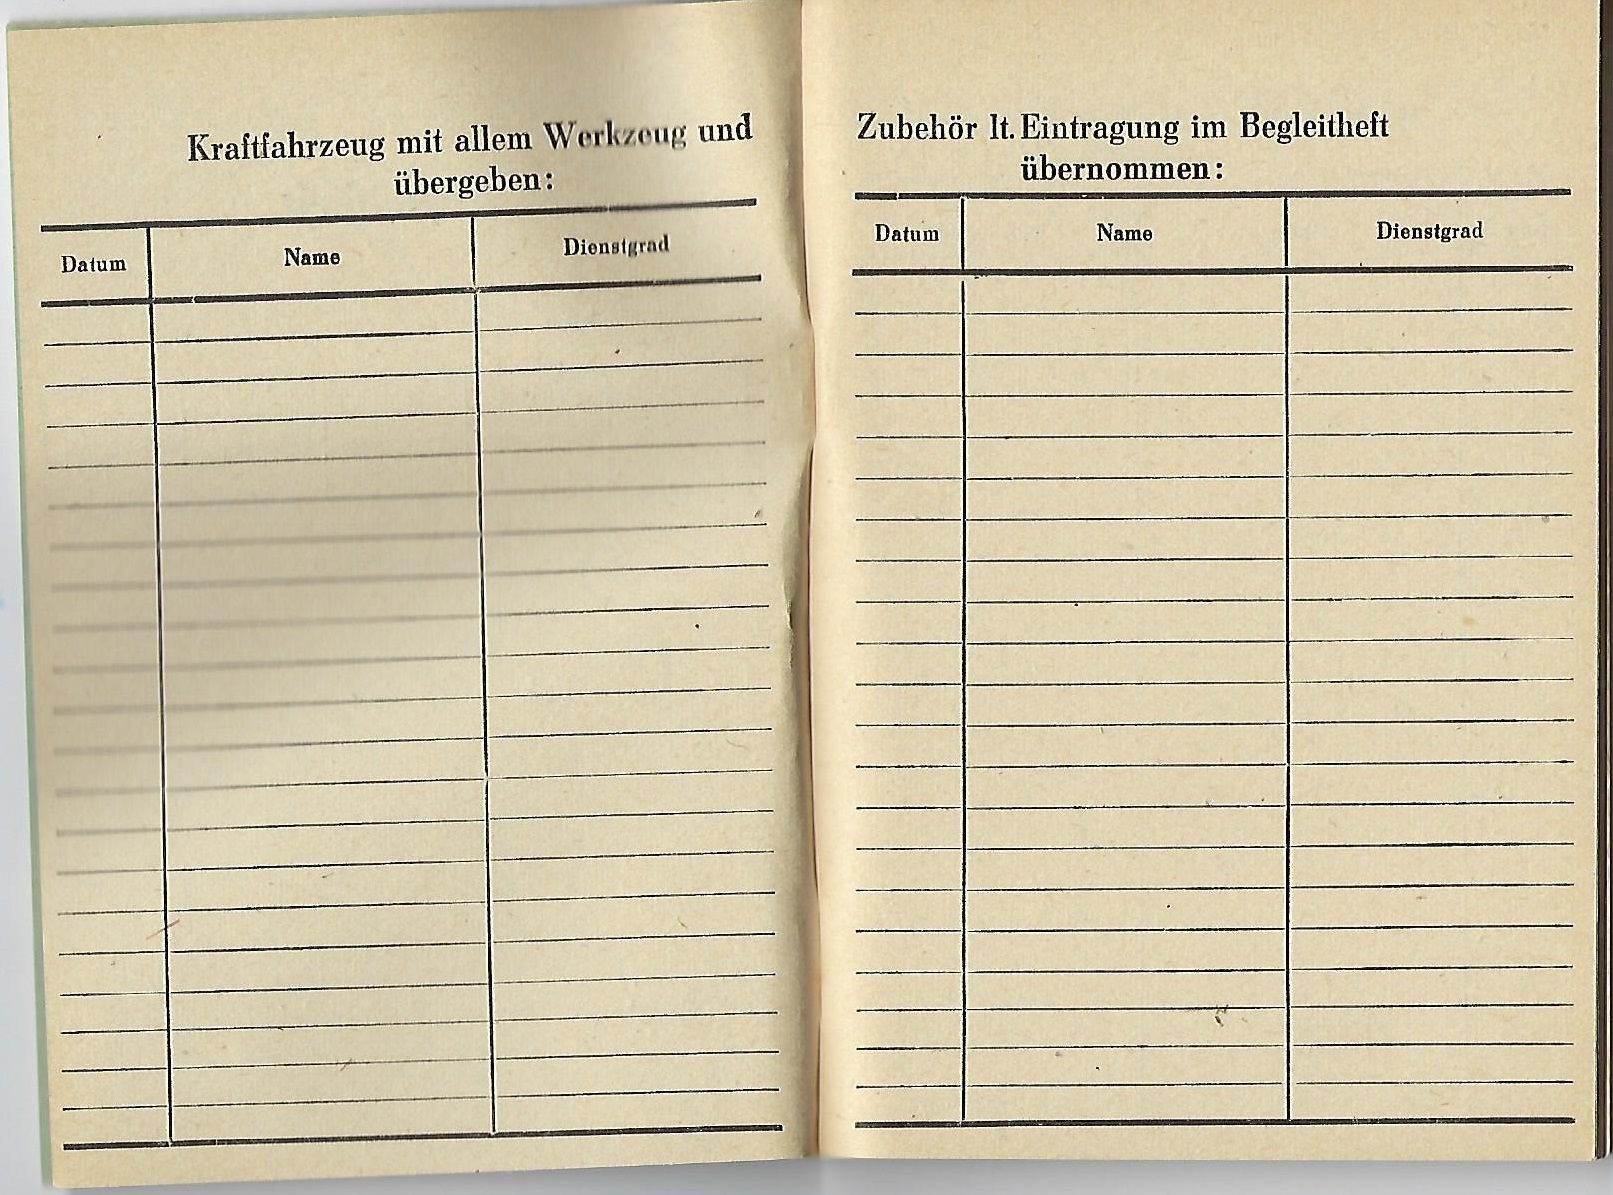 Kraftfahrzeug mit allem Werkzeug und
übergeben:
Datum Name Dienstgrad
Zubehör lt. Eintragung im Begleitheft
übernommen:
Datum Name Dienstgrad